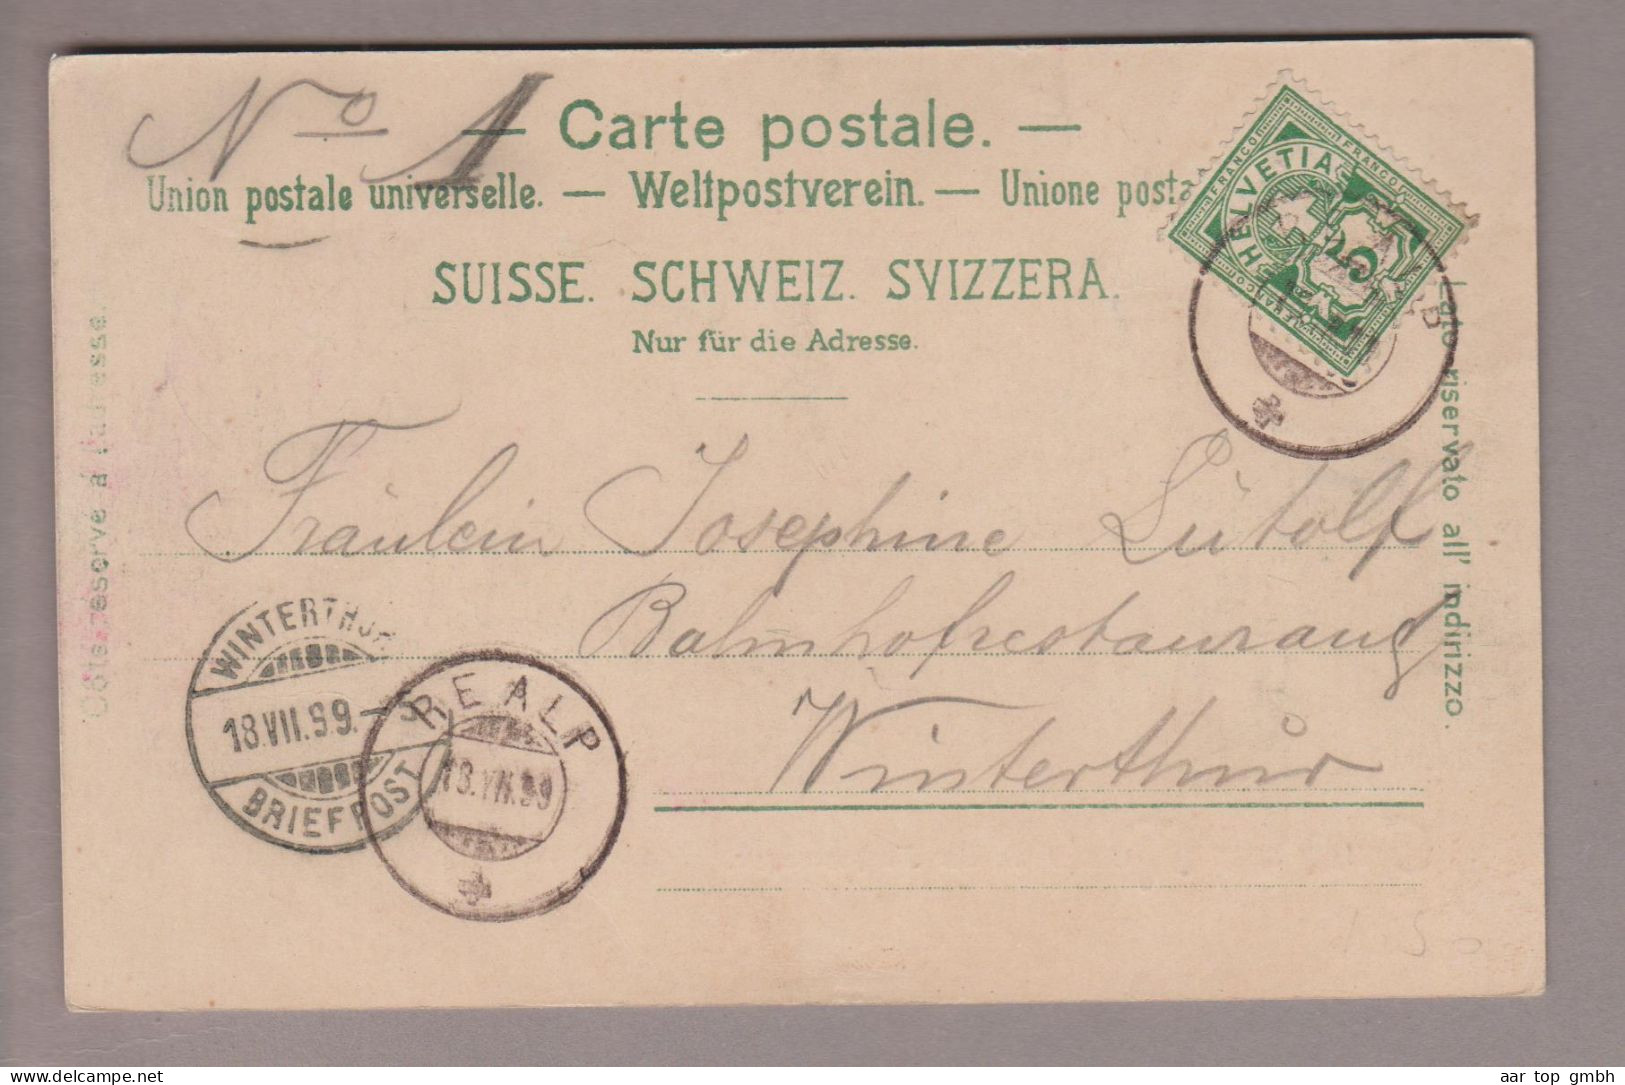 No 1
— Carte postale. —
Union postale universelle. — Weltpostverein. — Unione posta
SUISSE. SCHWEIZ. SVIZZERA.
Nur für die Adresse.
HELVETIA
FRANCO FRANCO
FRANCO FRANCO
5
Côté réservé à l'adresse.
Lato riservato all' indirizzo.
Fräulein Josephine Lütolf
Bahnhofrestaurang
Winterthur
WINTERTHUR
18.VII.99.
BRIEFPOST
REALP
18.VII.99
aar top gmbh
delcampe.net